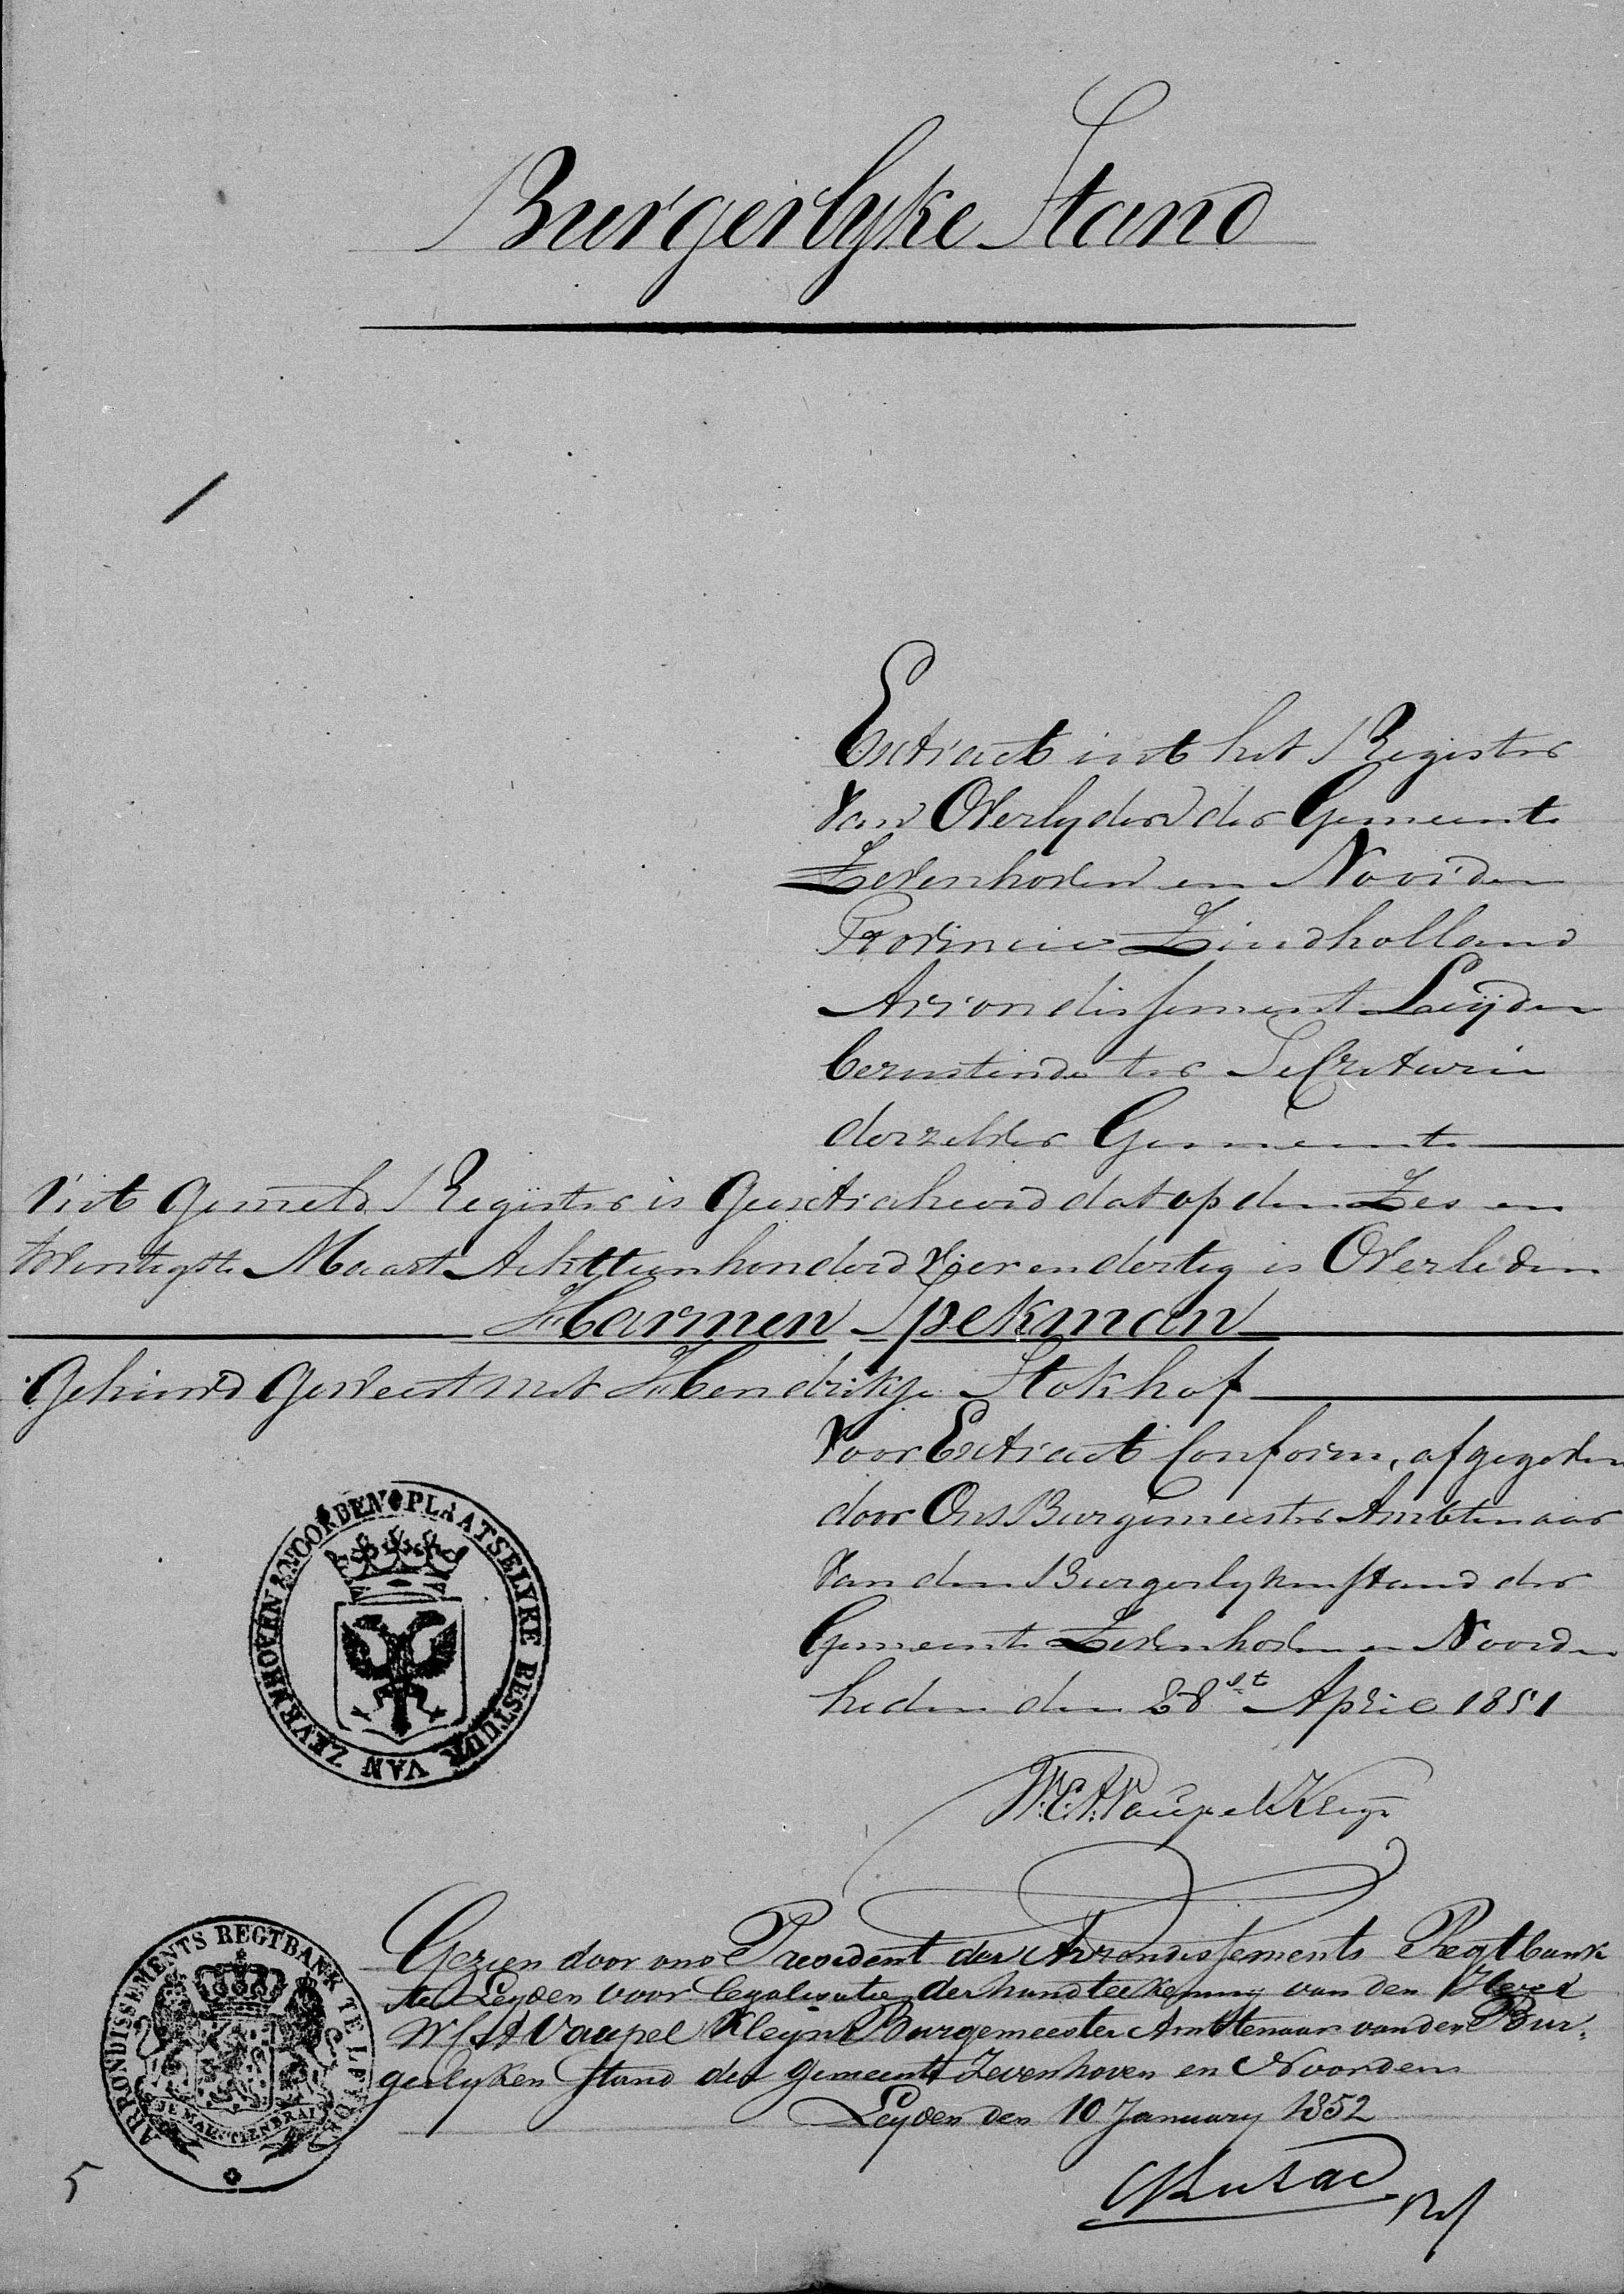 Burgerlyke Stand
Extract uit het Register
van Overlyden der Gemeente
Zevenhoven en Noorden
Provincie Zuidholland
Arrondissement Leijden
berustende ter Secretarie
derzelver Gemeente
Uit Gemeld Register is Geextraheerd dat op den Zes en
twintigste Maart Achttienhonderd Vier en dertig is Overleden
Harmen Spekman
Gehuwd Geweest met Hendrikje Stokhof
Voor Extract Conform, afgegeven
door Ons Burgemeester Ambtenaar
van den Burgerlyken stand der
Gemeente Zevenhoven en Noorden
heden den 28st April 1851
W.C.A. Vaupel Kleijn
PLAATSELYKE BESTUUR VAN ZEVENHOVEN & NOORDEN
Gezien door ons President der Arrondissements Regtbank
te Leyden voor legalisatie der handteekening van den Heer
W C A Vaupel Kleyn Burgemeester Ambtenaar van den Bur-
gerlyken stand der gemeente Zevenhoven en Noorden
Leyden den 10 January 1852
ARRONDISSEMENTS REGTBANK TE LEYDEN
JE MAINTIENDRAI
5